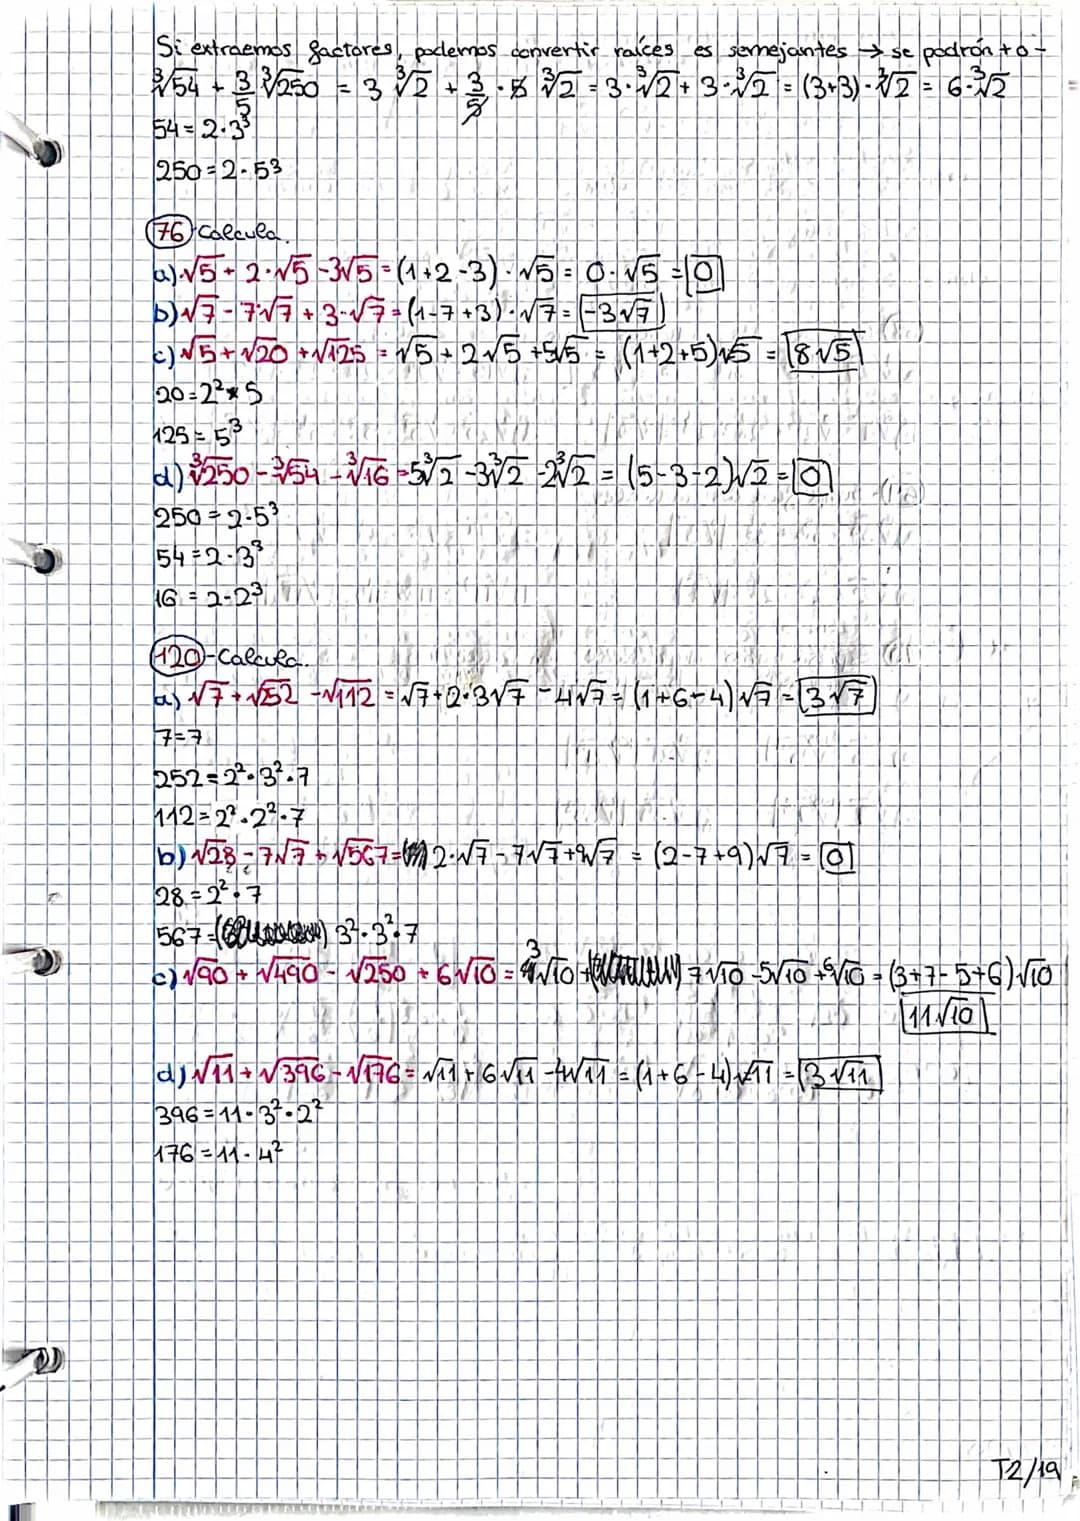 Si extraemos factores, podemos convertir raíces es semejantes → se podrón + o -
∛54 + 3/5 ∛250 = 3 ∛2 + 3/5 · 5 ∛2 = 3·∛2 + 3·∛2 = (3+3)·∛2 = 6·∛2
54 = 2·3³
250 = 2·5³
76 Calcula.
a) √5 + 2·√5 - 3√5 = (1+2-3)·√5 = 0·√5 = 0
b) √7 - 7·√7 + 3·√7 = (1-7+3)·√7 = -3√7
c) √5 + √20 + √125 = √5 + 2√5 + 5√5 = (1+2+5)√5 = 8√5
20 = 2² * 5
125 = 5³
d) ∛250 - ∛54 - ∛16 = 5∛2 - 3∛2 - 2∛2 = (5-3-2)√2 = 0
250 = 2·5³
54 = 2·3³
16 = 2·2³
120 - Calcula.
a) √7 + √252 - √112 = √7 + 2·3√7 - 4√7 = (1+6-4)√7 = 3√7
7 = 7
252 = 2²·3²·7
112 = 2²·2²·7
b) √28 - 7√7 + √567 = 2·√7 - 7√7 + 9√7 = (2-7+9)√7 = 0
28 = 2²·7
567 = 3²·3²·7
c) √90 + √490 - √250 + 6√10 = 3√10 + 7√10 - 5√10 + 6√10 = (3+7-5+6)√10
11√10
d) √11 + √396 - √176 = √11 + 6√11 - 4√11 = (1+6-4)√11 = 3√11
396 = 11·3²·2²
176 = 11·4²
T2/19